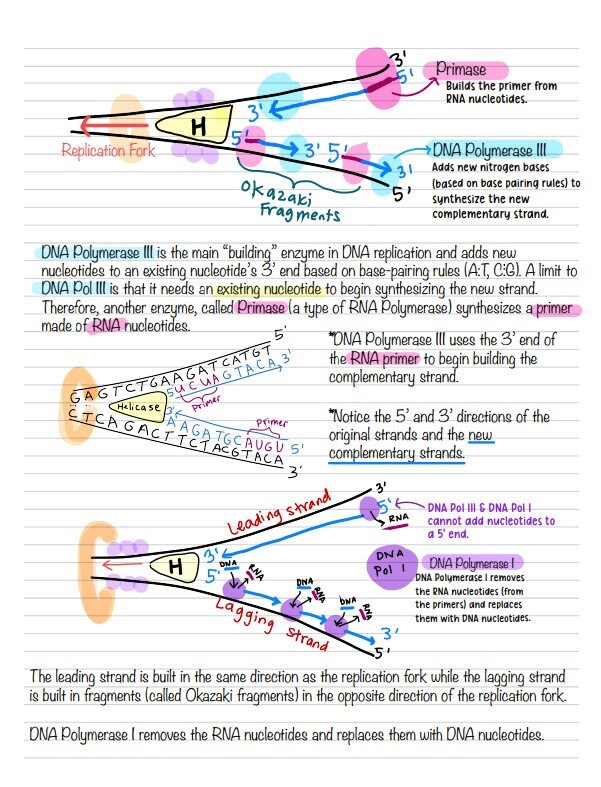 3'
5'
Primase
Builds the primer from
RNA nucleotides.
3'
H
5'
3' 5'
3'
5'
Replication Fork
Okazaki
Fragments
DNA Polymerase III
Adds new nitrogen bases
(based on base pairing rules) to
synthesize the new
complementary strand.
DNA Polymerase III is the main "building" enzyme in DNA replication and adds new
nucleotides to an existing nucleotide's 3' end based on base-pairing rules (A:T, C:G). A limit to
DNA Pol III is that it needs an existing nucleotide to begin synthesizing the new strand.
Therefore, another enzyme, called Primase (a type of RNA Polymerase) synthesizes a primer
made of RNA nucleotides.
5'
GAGTCTGAAGATCATGT
5' UCUAGTACA 3'
Primer
Helicase
Primer
3' AAGATGCAUGU 5'
CTCAGACTTCTACGTACA
3'
*DNA Polymerase III uses the 3' end of
the RNA primer to begin building the
complementary strand.
*Notice the 5' and 3' directions of the
original strands and the new
complementary strands.
3'
Leading strand
5'
RNA
DNA Pol III & DNA Pol I
cannot add nucleotides to
a 5' end.
H
3'
5'
DNA
RNA
DNA
RNA
DNA
RNA
3'
5'
Lagging strand
DNA
Pol I
DNA Polymerase I
DNA Polymerase I removes
the RNA nucleotides (from
the primers) and replaces
them with DNA nucleotides.
The leading strand is built in the same direction as the replication fork while the lagging strand
is built in fragments (called Okazaki fragments) in the opposite direction of the replication fork.
DNA Polymerase I removes the RNA nucleotides and replaces them with DNA nucleotides.